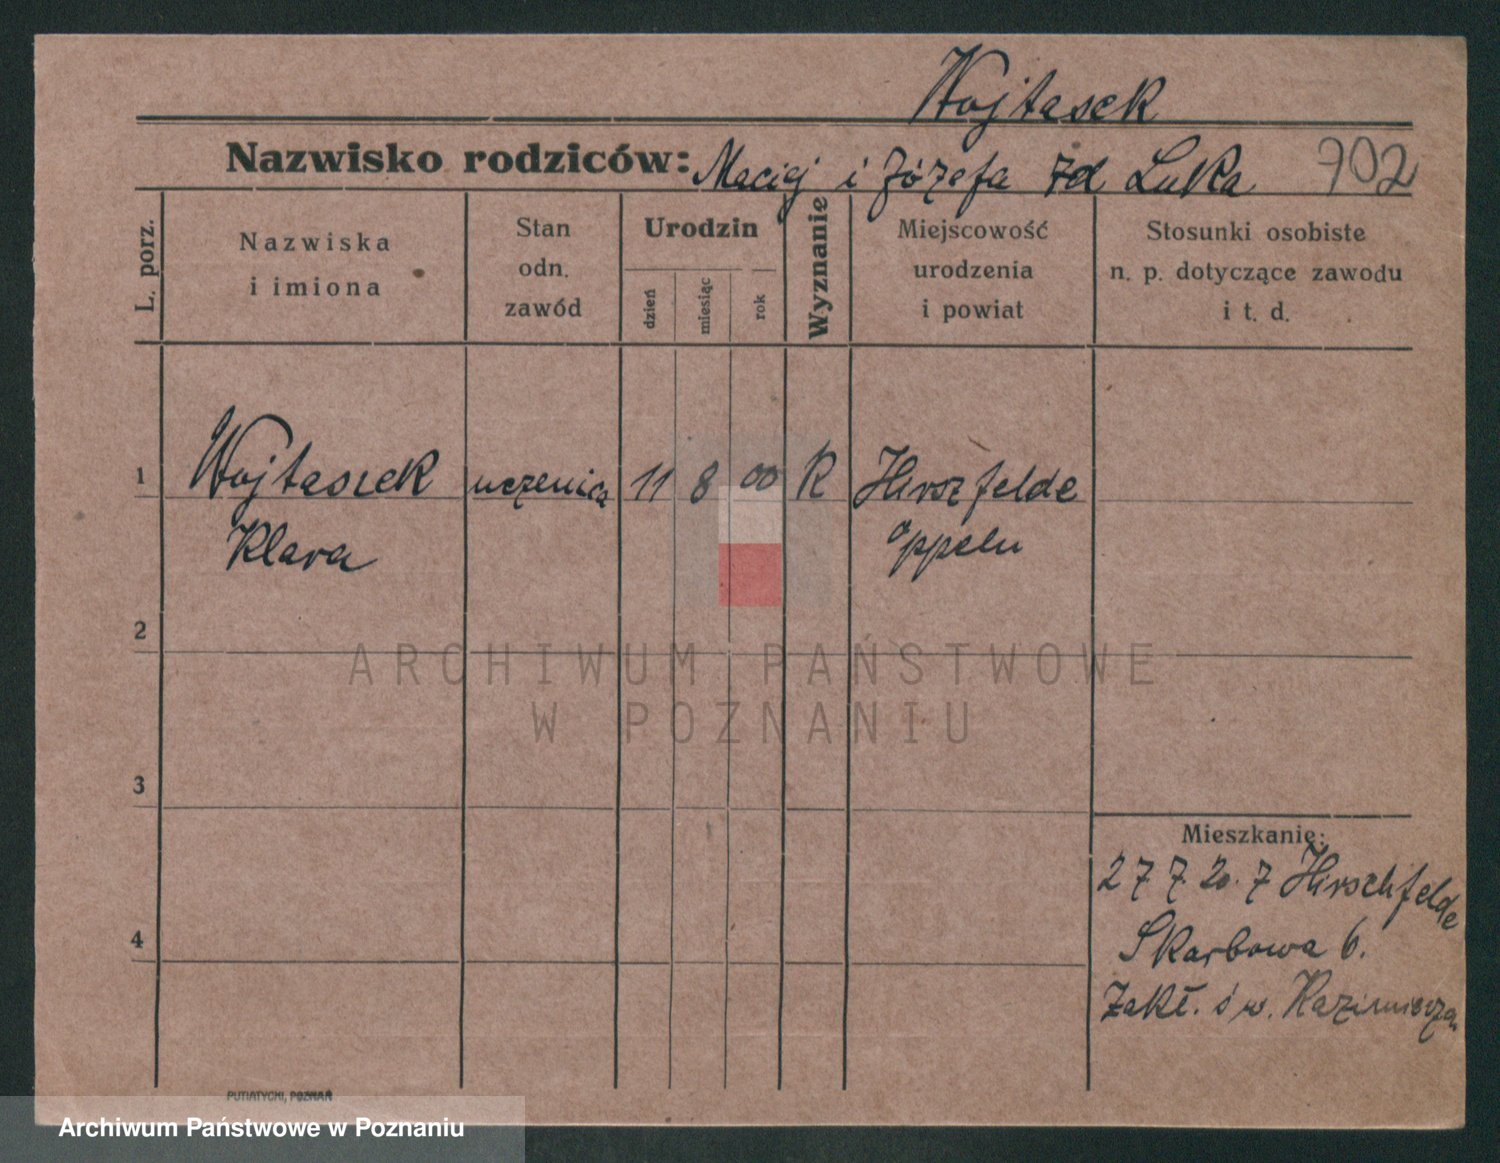 Wojtasek
Nazwisko rodziców: Maciej i Józefa zd Luka 702
L. porz.
Nazwiska
i imiona
Stan
odn.
zawód
Urodzin
dzień
miesiąc
rok
Wyznanie
Miejscowość
urodzenia
i powiat
Stosunki osobiste
n. p. dotyczące zawodu
i t. d.
1 Wojtaszek uczenica 11 8 00 R Hirszfelde
Klara Oppeln
2
ARCHIWUM PAŃSTWOWE
W POZNANIU
3
Mieszkanie:
27 7. 20. z Hirschfelde
Skarbowa 6.
4
Zakł. św. Kazimierza
PUTIATYCKI, POZNAŃ
Archiwum Państwowe w Poznaniu